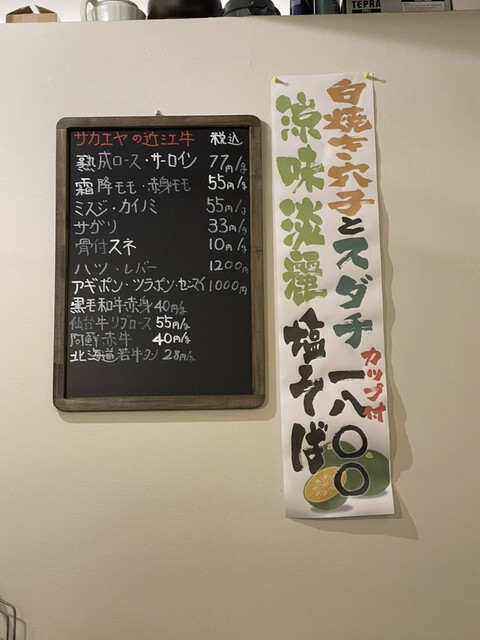 TEPRA
サカエヤの近江牛 税込
熟成ロース・サーロイン 77円/g
霜降モモ・赤身モモ 55円/g
ミスジ・カイノミ 55円/g
サガリ 33円/g
骨付スネ 10円/g
ハツ・レバー 1200円
アギポン・ツラポン・セースイ 1000円
黒毛和牛赤身 40円/g
仙台牛リブロース 55円/g
阿蘇赤牛 40円/g
北海道若牛タン 28円/g
白焼き穴子とスダチ
涼味淡麗塩そば
カップ付
一八〇〇